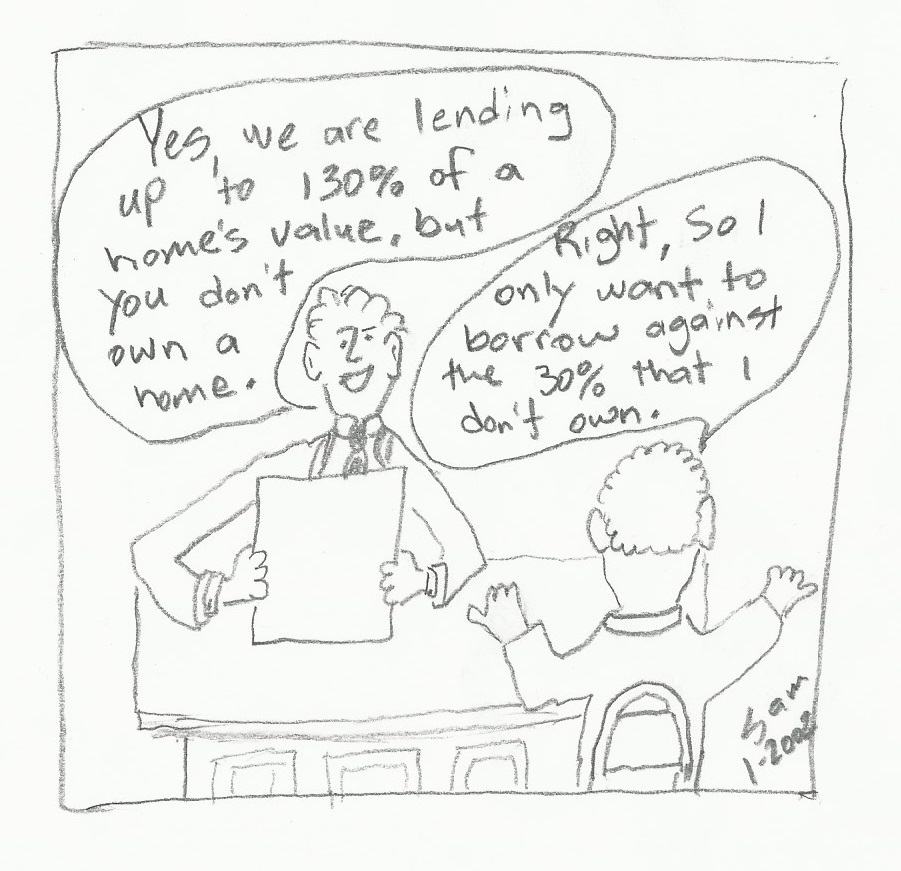 Yes, we are lending
up to 130% of a
home's value, but
you don't
own a
home.
Right, So I
only want to
borrow against
the 30% that I
don't own.
Sam
1-2002